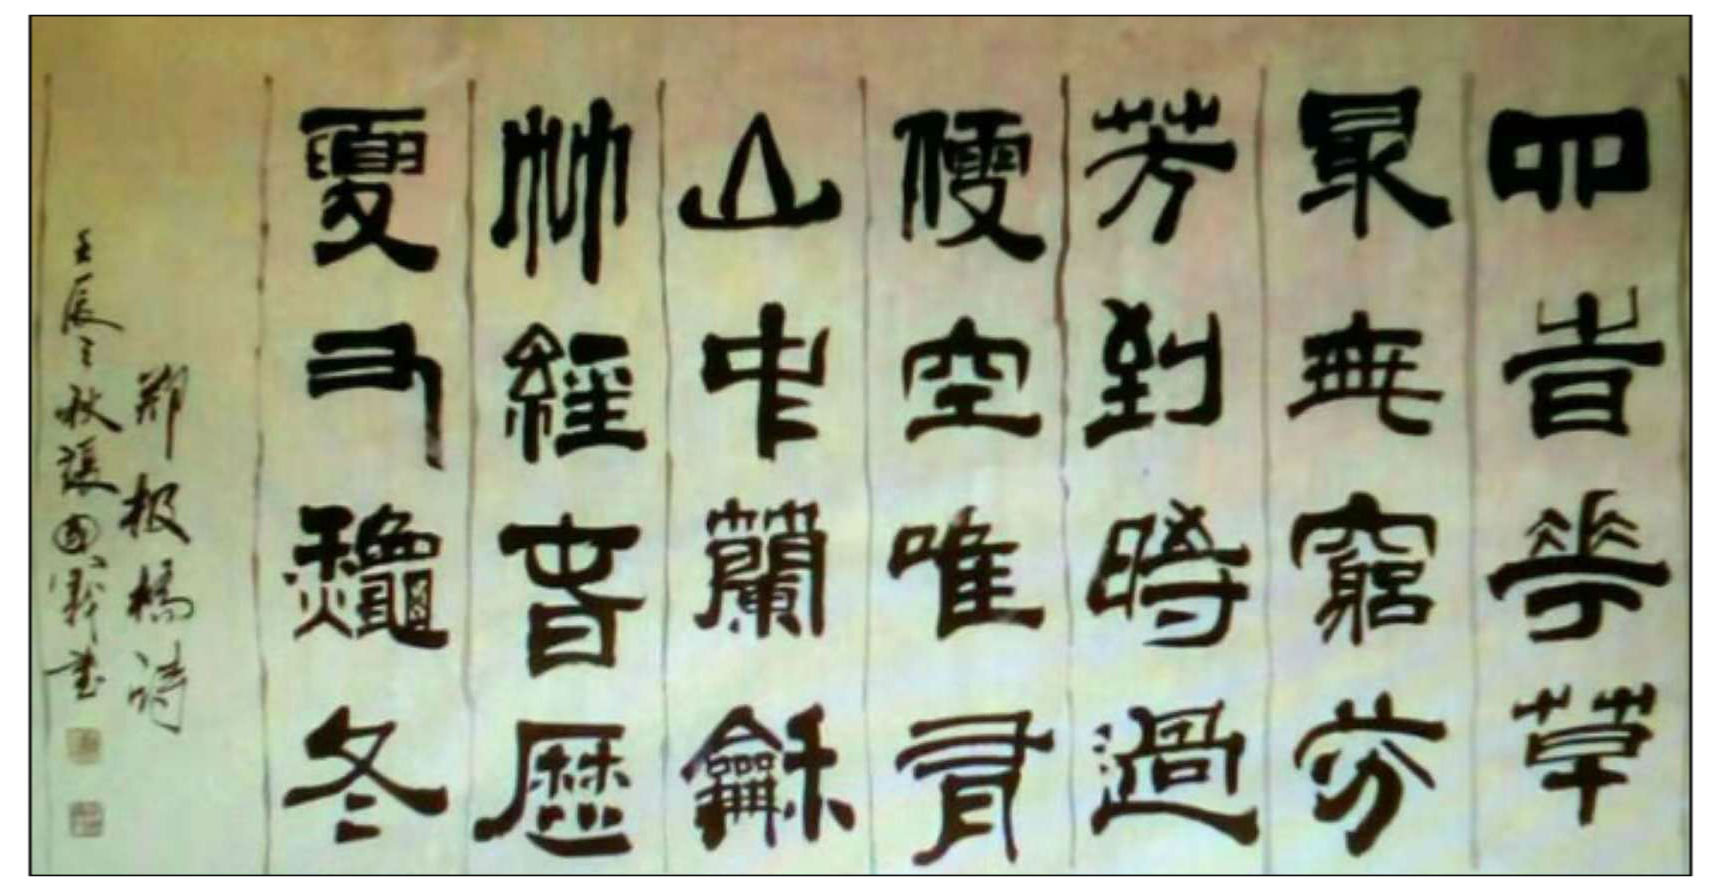 四旹花草
最無窮芬
芳到時過
便空唯有
山中蘭龢
竹經春歷
夏又穐冬
鄭板橋詩
壬辰之秋張
書